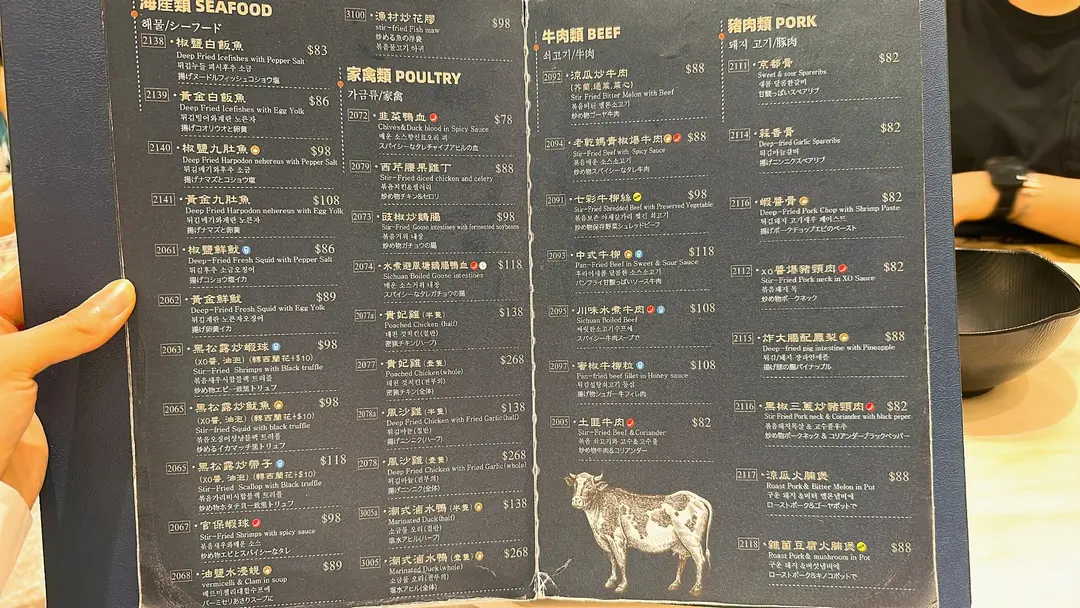 海產類 SEAFOOD
해물/シーフード
2138 · 椒鹽白飯魚 $83
Deep Fried Icefishes with Pepper Salt
揚げヌードルフィッシュコショウ塩
2139 · 黃金白飯魚 $86
Deep Fried Icefishes with Egg Yolk
揚げコオリウオと卵黄
2140 · 椒鹽九肚魚 $98
Deep Fried Harpodon nehereus with Pepper Salt
揚げナマズとコショウ塩
2141 · 黃金九肚魚 $108
Deep Fried Harpodon nehereus with Egg Yolk
揚げナマズと卵黄
2061 · 椒鹽鮮魷 $86
Deep-Fried Fresh Squid with Pepper Salt
튀김후추 소금오징어
揚げコショウ塩イカ
2062 · 黃金鮮魷 $89
Deep-Fried Fresh Squid with Egg Yolk
튀김계란 노른자오징어
揚げ卵黄イカ
2063 · 黑松露炒蝦球 $98
(XO醬, 油泡) (轉西蘭花+$10)
Stir-Fried Shrimps with Black truffle
炒め物エビ一致黒トリュフ
2065 · 黑松露炒魷魚 $98
(XO醬, 油泡) (轉西蘭花+$10)
Stir-fried Squid with black truffle
炒めるイカマッチ黒トリュフ
2065 · 黑松露炒帶子 $118
(XO醬, 油泡) (轉西蘭花+$10)
Stir-Fried Scallop with Black truffle
炒め物ホタテ貝一致黒トリュフ
2067 · 官保蝦球 $98
Stir-Fried Shrimps with spicy sauce
볶음새우와매운 소스
炒め物エビとスパイシーなタレ
2068 · 油鹽水浸蜆 $89
vermicelli & Clam in soup
バーミセリあさりスープに
3100 · 漁村炒花膠 $98
stir-fried Fish maw
炒める魚の浮袋
볶음물고기 아귀
家禽類 POULTRY
가금류/家禽
2072 · 韭菜鴨血 $78
Chives&Duck blood in Spicy Sauce
매운 소스향신료오리 피
スパイシーなタレチャイブアヒルの血
2079 · 西芹腰果雞丁 $88
Stir-Fried diced chicken and celery
볶음치킨&샐러리
炒め物チキン&セロリ
2073 · 豉椒炒鵝腸 $98
Stir-Fried Goose intestines with fermented soybeans
볶음거위 내장
炒め物ガチョウの腸
2074 · 水煮避風塘鵝腸鴨血 $118
Sichuan Boiled Goose intestines
매운 소스거위 내장
スパイシーなタレガチョウの腸
2077a · 貴妃雞 (半隻) $138
Poached Chicken (half)
데친 것치킨(절반)
密猟チキン(ハーフ)
2077 · 貴妃雞 (壹隻) $268
Poached Chicken(whole)
데친 것치킨(전부의)
密猟チキン(全体)
2078a · 風沙雞 (半隻) $138
Deep Fried Chicken with Fried Garlic(half)
튀김마늘(절반)
揚げニンニク(ハーフ)
2078 · 風沙雞 (壹隻) $268
Deep Fried Chicken with Fried Garlic(whole)
튀김마늘(전부의)
揚げニンニク(全体)
3005a · 潮式滷水鴨 (半隻) $138
Marinated Duck(half)
소금물 오리(절반)
塩水アヒル(ハーフ)
3005 · 潮式滷水鴨 (壹隻) $268
Marinated Duck(whole)
소금물 오리(전부의)
塩水アヒル(全体)
牛肉類 BEEF
쇠고기/牛肉
2092 · 涼瓜炒牛肉 $88
(芥蘭,通菜,菜心)
Stir Fried Bitter Melon with Beef
炒め物ゴーヤ牛肉
2094 · 老乾媽青椒爆牛肉 $88
Stir-Fried Beef with Spicy Sauce
볶음매운 소스소고기
炒め物スパイシーなタレ牛肉
2091 · 七彩牛柳絲 $98
Stir-Fried Shredded Beef with Preserved Vegetable
炒め物保存野菜シュレッドビーフ
2093 · 中式牛柳 $118
Pan-Fried Beef in Sweet & Sour Sauce
후라이새콤 달콤한소스소고기
パンフライ甘酸っぱいソース牛肉
2095 · 川味水煮牛肉 $108
Sichuan Boiled Beef
スパイシー牛肉スープで
2097 · 蜜椒牛柳粒 $108
Pan-fried beef fillet in Honey sauce
揚げ物シュガー牛フィレ肉
2005 · 土匪牛肉 $82
Stir-Fried Beef &Coriander
볶음 쇠고기와 고수&고수풀
炒め物牛肉&コリアンダー
豬肉類 PORK
돼지 고기/豚肉
2111 · 京都骨 $82
Sweet & sour Spareribs
새콤 달콤한갈비
甘酸っぱいスペアリブ
2114 · 蒜香骨 $82
Deep-fried Garlic Spareribs
튀김마늘갈비
揚げニンニクスペアリブ
2116 · 蝦醬骨 $82
Deep-Fried Pork Chop with Shrimp Paste
揚げポークチョップエビのペースト
2112 · XO醬爆豬頸肉 $82
Stir-Fried Pork neck in XO Sauce
볶음돼지 목
炒め物ポークネック
2115 · 炸大腸配鳳梨 $88
Deep-fried pig intestine with Pineapple
揚げ豚の腸パイナップル
2116 · 黑椒三蔥炒豬頸肉 $82
Stir Fried Pork neck & Coriander with black peper
볶음돼지목살 & 고수블후추
炒め物ポークネック & コリアンダーブラックペッパー
2117 · 涼瓜火腩煲 $88
Roast Pork& Bitter Melon in Pot
ローストポーク&ゴーヤポットで
2118 · 雜菌豆腐火腩煲 $88
Roast Pork& mushroom in Pot
구운 돼지 &버섯냄비에
ローストポーク&キノコポットで